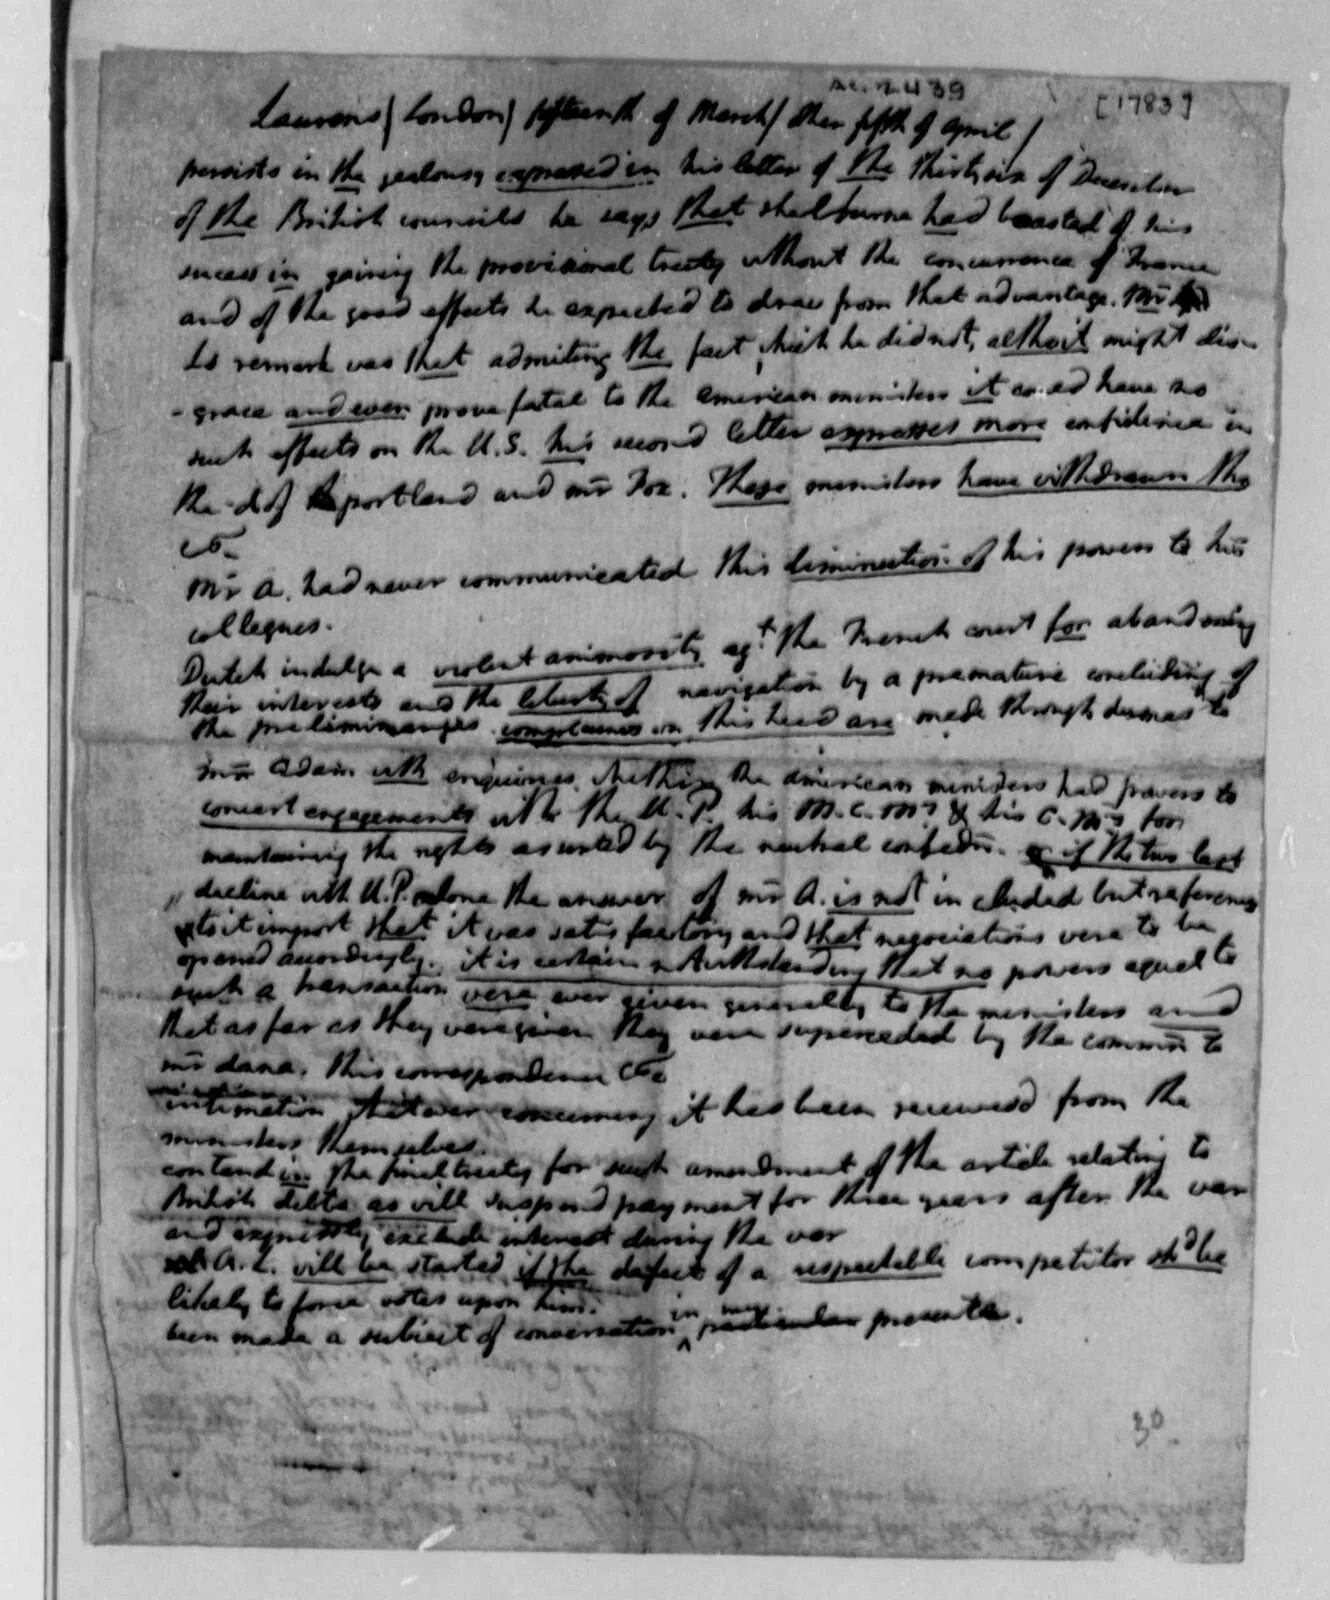 Ac. 2.439
[1783]
Laurens (London) fifteenth of March / other fifth of April /
persists in the jealousy expressed in his letter of the thirtysix of December
of the British councils he says that shelburne had boasted of his
sucess in gaining the provisional treaty without the concurrence of France
and of the good effects he expected to draw from that advantage. Mr
Ls remark was that admiting the fact which he did not, altho it might dis-
-grace and even prove fatal to the American ministers it could have no
such effects on the U.S. his second letter expresses more confidence in
the d of portland and mr Fox. These ministers have withdrawn the
&c.
Mr A. had never communicated this diminution of his powers to his
collegues.
Dutch indulge a violent animosity agt. the French court for abandoning
their interests and the liberty of navigation by a premature concluding of
the preliminaryes. complaines on this head are made through dumas to
mr Adam with enquiries whether the american ministers had powers to
concert engagements with the U.P. his M.C.M. & his C.M. for
maintaining the rights asserted by the neutral confedn. or if the two last
decline with U.P. alone the answer of mr A. is not included but references
to it import that it was satisfactory and that negociations were to be
opened accordingly. it is certain notwithstanding that no powers equal to
such a transaction were ever given generally to the ministers and
that as far as they were given they were superceded by the commn to
mr dana. this correspondence &c
intimation whatever concerning it has been received from the
ministers themselves.
contend in the final treaty for such amendment of the article relating to
British debts as will suspend payment for three years after the war
and expressly exclude interest during the war
A.L. will be started if the defect of a respectable competitor shd be
likely to force votes upon him.
been made a subject of conversation in my particular presence.
30